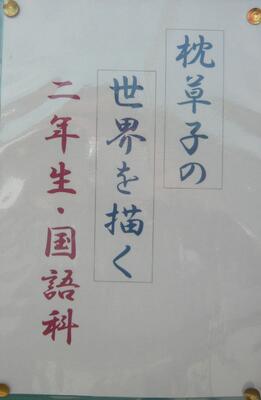 枕草子の
世界を描く
二年生・国語科